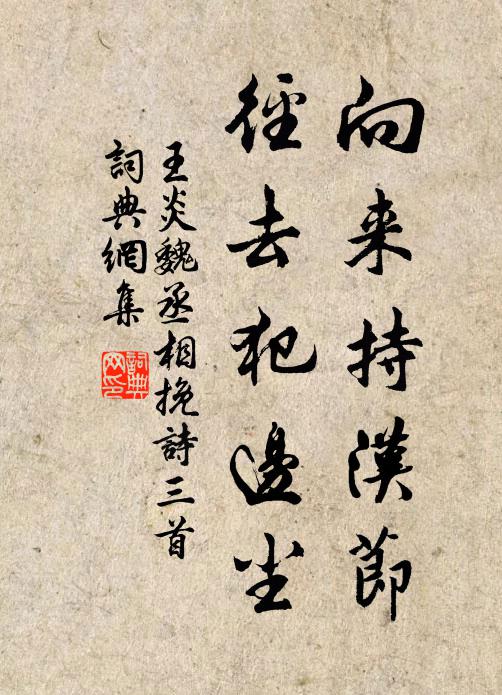 向来持漢節
徑去犯邊尘
王炎魏丞相挽詩三首
詞典網集
詞典
网印